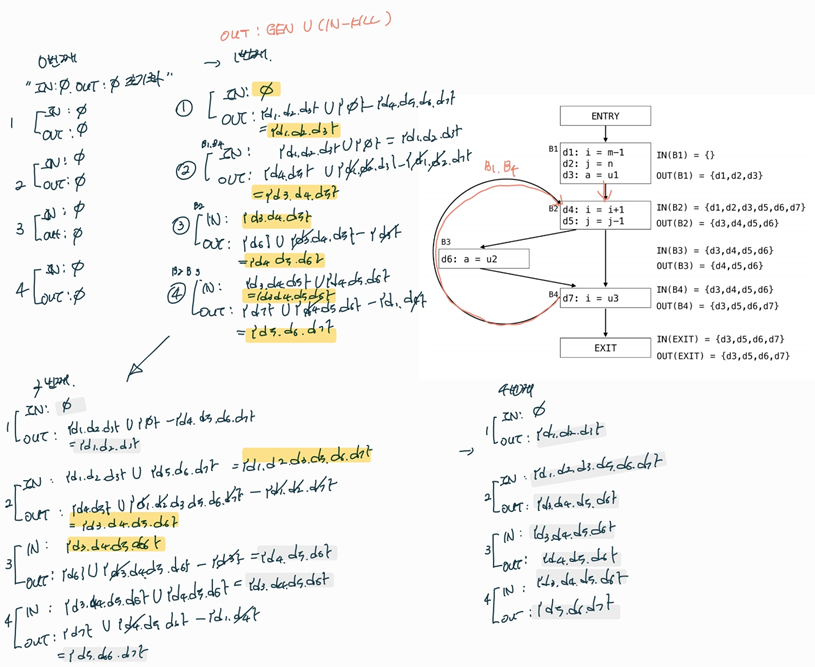 OUT : GEN U (IN-KILL)
0번째
"IN:∅. OUT:∅ 초기화"
1 IN : ∅
OUT : ∅
2 IN : ∅
OUT : ∅
3 IN : ∅
OUT : ∅
4 IN : ∅
OUT : ∅
→ 1번째.
① IN: ∅
OUT: {d1.d2.d3} U {∅} - {d4.d5.d6.d7}
= {d1.d2.d3}
B1.B4
② IN: {d1.d2.d3} U {∅} = {d1.d2.d3}
OUT: {d4.d5} U {d1.d2.d3} - {d1.d2.d7}
= {d3.d4.d5}
B2
③ IN: {d3.d4.d5}
OUT: {d6} U {d3.d4.d5} - {d3}
= {d4.d5.d6}
B2 B3
④ IN: {d3.d4.d5} U {d4.d5.d6}
= {d3.d4.d5.d6}
OUT: {d7} U {d3.d4.d5.d6} - {d1.d4}
= {d5.d6.d7}
ENTRY
B1
d1: i = m-1
d2: j = n
d3: a = u1
IN(B1) = {}
OUT(B1) = {d1,d2,d3}
B1.B4
B2
d4: i = i+1
d5: j = j-1
IN(B2) = {d1,d2,d3,d5,d6,d7}
OUT(B2) = {d3,d4,d5,d6}
B3
d6: a = u2
IN(B3) = {d3,d4,d5,d6}
OUT(B3) = {d4,d5,d6}
B4
d7: i = u3
IN(B4) = {d3,d4,d5,d6}
OUT(B4) = {d3,d5,d6,d7}
EXIT
IN(EXIT) = {d3,d5,d6,d7}
OUT(EXIT) = {d3,d5,d6,d7}
번째.
1 IN: ∅
OUT : {d1.d2.d3} U {∅} - {d4.d5.d6.d7}
= {d1.d2.d3}
2 IN : {d1.d2.d3} U {d5.d6.d7} = {d1.d2.d3.d5.d6.d7}
OUT : {d4.d5} U {d1.d2.d3.d5.d6.d7} - {d1.d2.d7}
= {d3.d4.d5.d6}
3 IN: {d3.d4.d5.d6}
OUT: {d6} U {d3.d4.d5.d6} - {d3} = {d4.d5.d6}
4 IN : {d3.d4.d5.d6} U {d4.d5.d6} = {d3.d4.d5.d6}
OUT: {d7} U {d4.d5.d6} - {d1.d4}
= {d5.d6.d7}
번째
→
1 IN: ∅
OUT: {d1.d2.d3}
2 IN : {d1.d2.d3.d5.d6.d7}
OUT: {d3.d4.d5.d6}
3 IN: {d3.d4.d5.d6}
OUT: {d4.d5.d6}
4 IN: {d3.d4.d5.d6}
OUT: {d5.d6.d7}